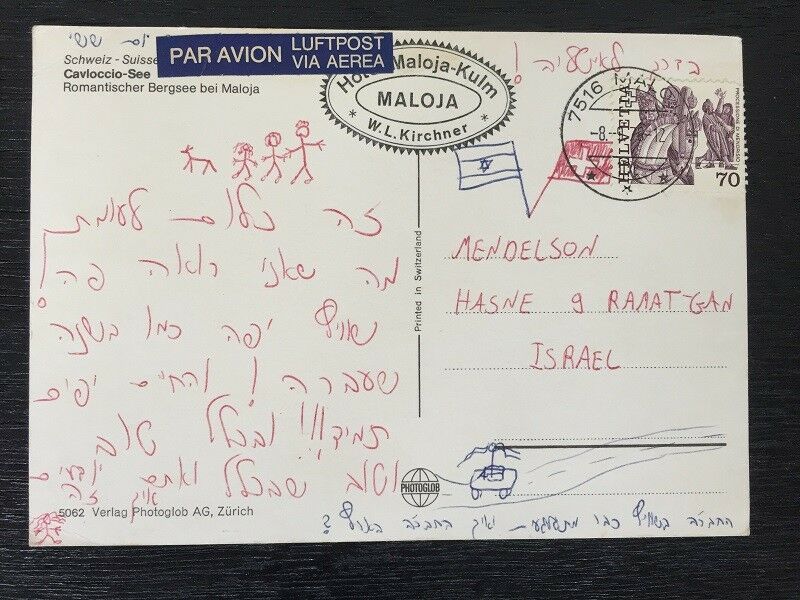 יום שישי
PAR AVION LUFTPOST
VIA AEREA
Schweiz - Suisse
Cavloccio-See
Romantischer Bergsee bei Maloja
Hotel Maloja-Kulm
MALOJA
W. L. Kirchner
בדרך לאיטליה!
7516 MALOJA
HELVETIA
70
זה כלום לעומת
מה שאני רואה פה!
שוויץ יפה כמו בשנה
שעברה! והחיים יפים
תמיד!!! ובכלל טוב
וטוב שבכלל ואתם יודעים
איך זה
Printed in Switzerland
MENDELSON
HASNE 9 RAMAT-GAN
ISRAEL
PHOTOGLOB
5062 Verlag Photoglob AG, Zürich
החברה בשוויץ כבר מתגעגע- ואיך החברה בארץ?